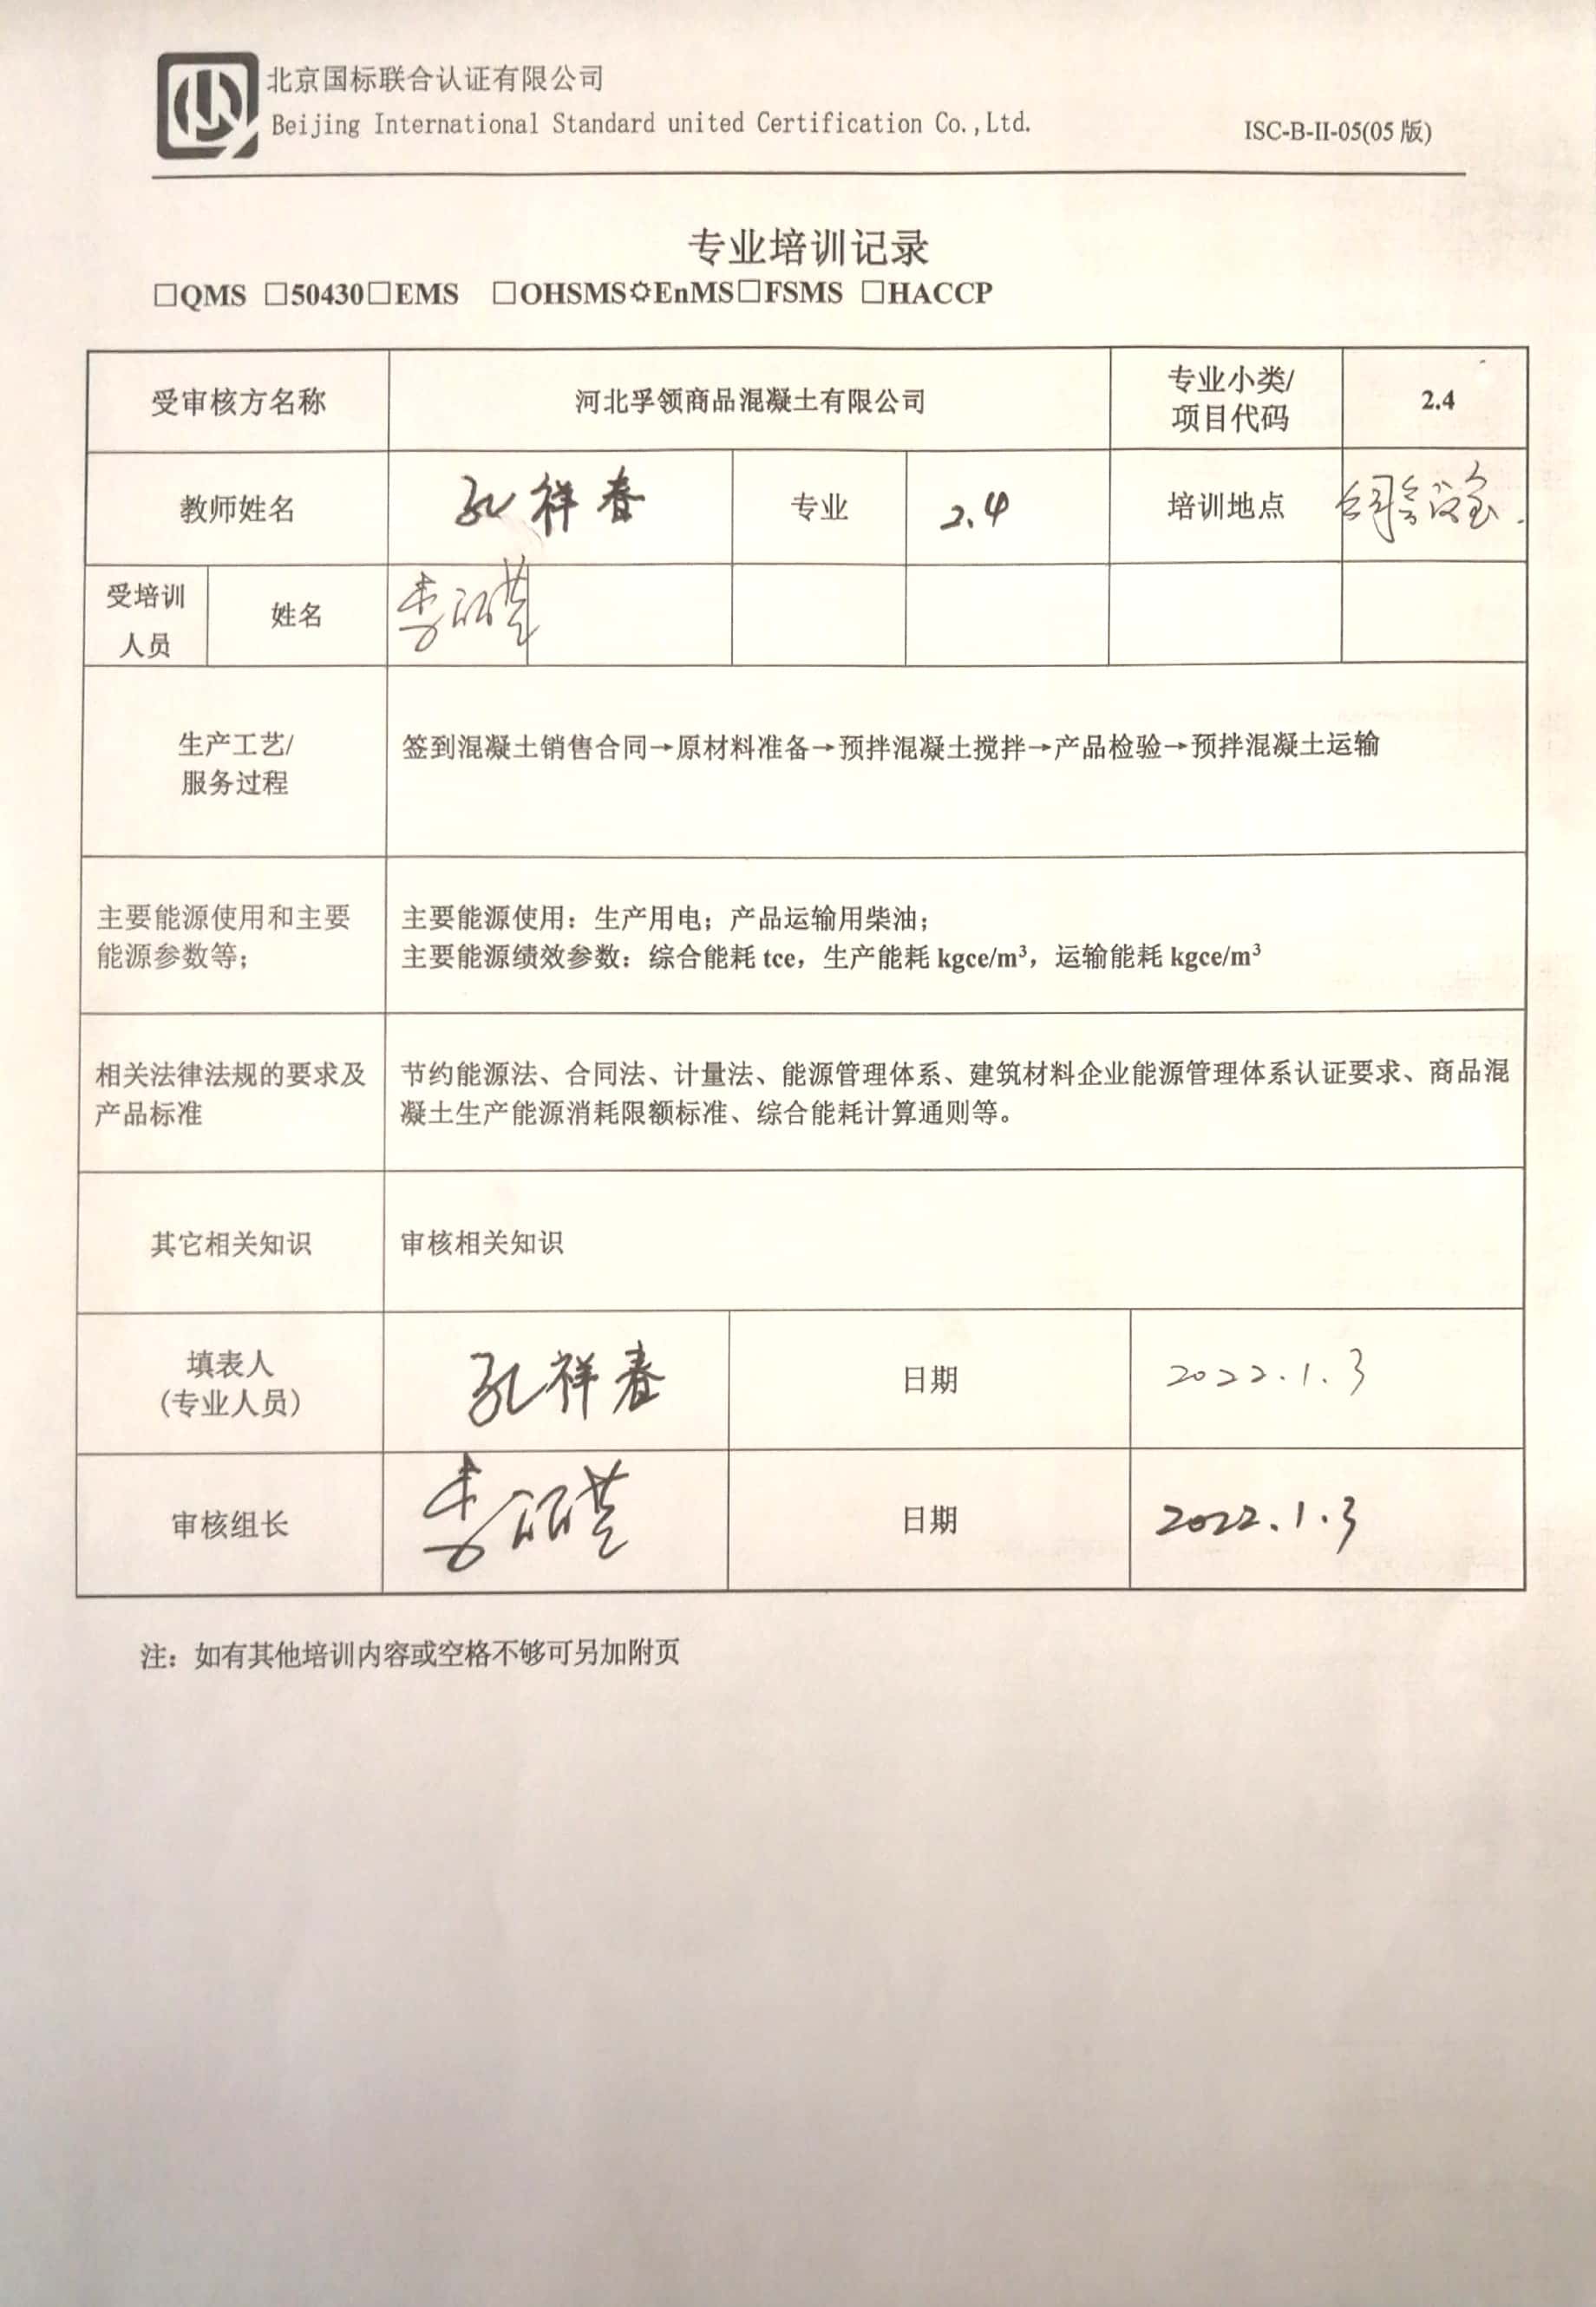 北京国标联合认证有限公司
Beijing International Standard united Certification Co.,Ltd.
ISC-B-II-05(05版)
专业培训记录
□QMS □50430□EMS □OHSMS☼EnMS□FSMS □HACCP
受审核方名称 河北孚领商品混凝土有限公司 专业小类/
项目代码 2.4
教师姓名 孔祥春 专业 2.4 培训地点 公司会议室.
受培训
人员 姓名 李
生产工艺/
服务过程
签到混凝土销售合同→原材料准备→预拌混凝土搅拌→产品检验→预拌混凝土运输
主要能源使用和主要
能源参数等;
主要能源使用：生产用电；产品运输用柴油；
主要能源绩效参数：综合能耗 tce，生产能耗 kgce/m³，运输能耗 kgce/m³
相关法律法规的要求及
产品标准
节约能源法、合同法、计量法、能源管理体系、建筑材料企业能源管理体系认证要求、商品混
凝土生产能源消耗限额标准、综合能耗计算通则等。
其它相关知识 审核相关知识
填表人
(专业人员) 孔祥春 日期 2022.1.3
审核组长 李 日期 2022.1.3
注：如有其他培训内容或空格不够可另加附页